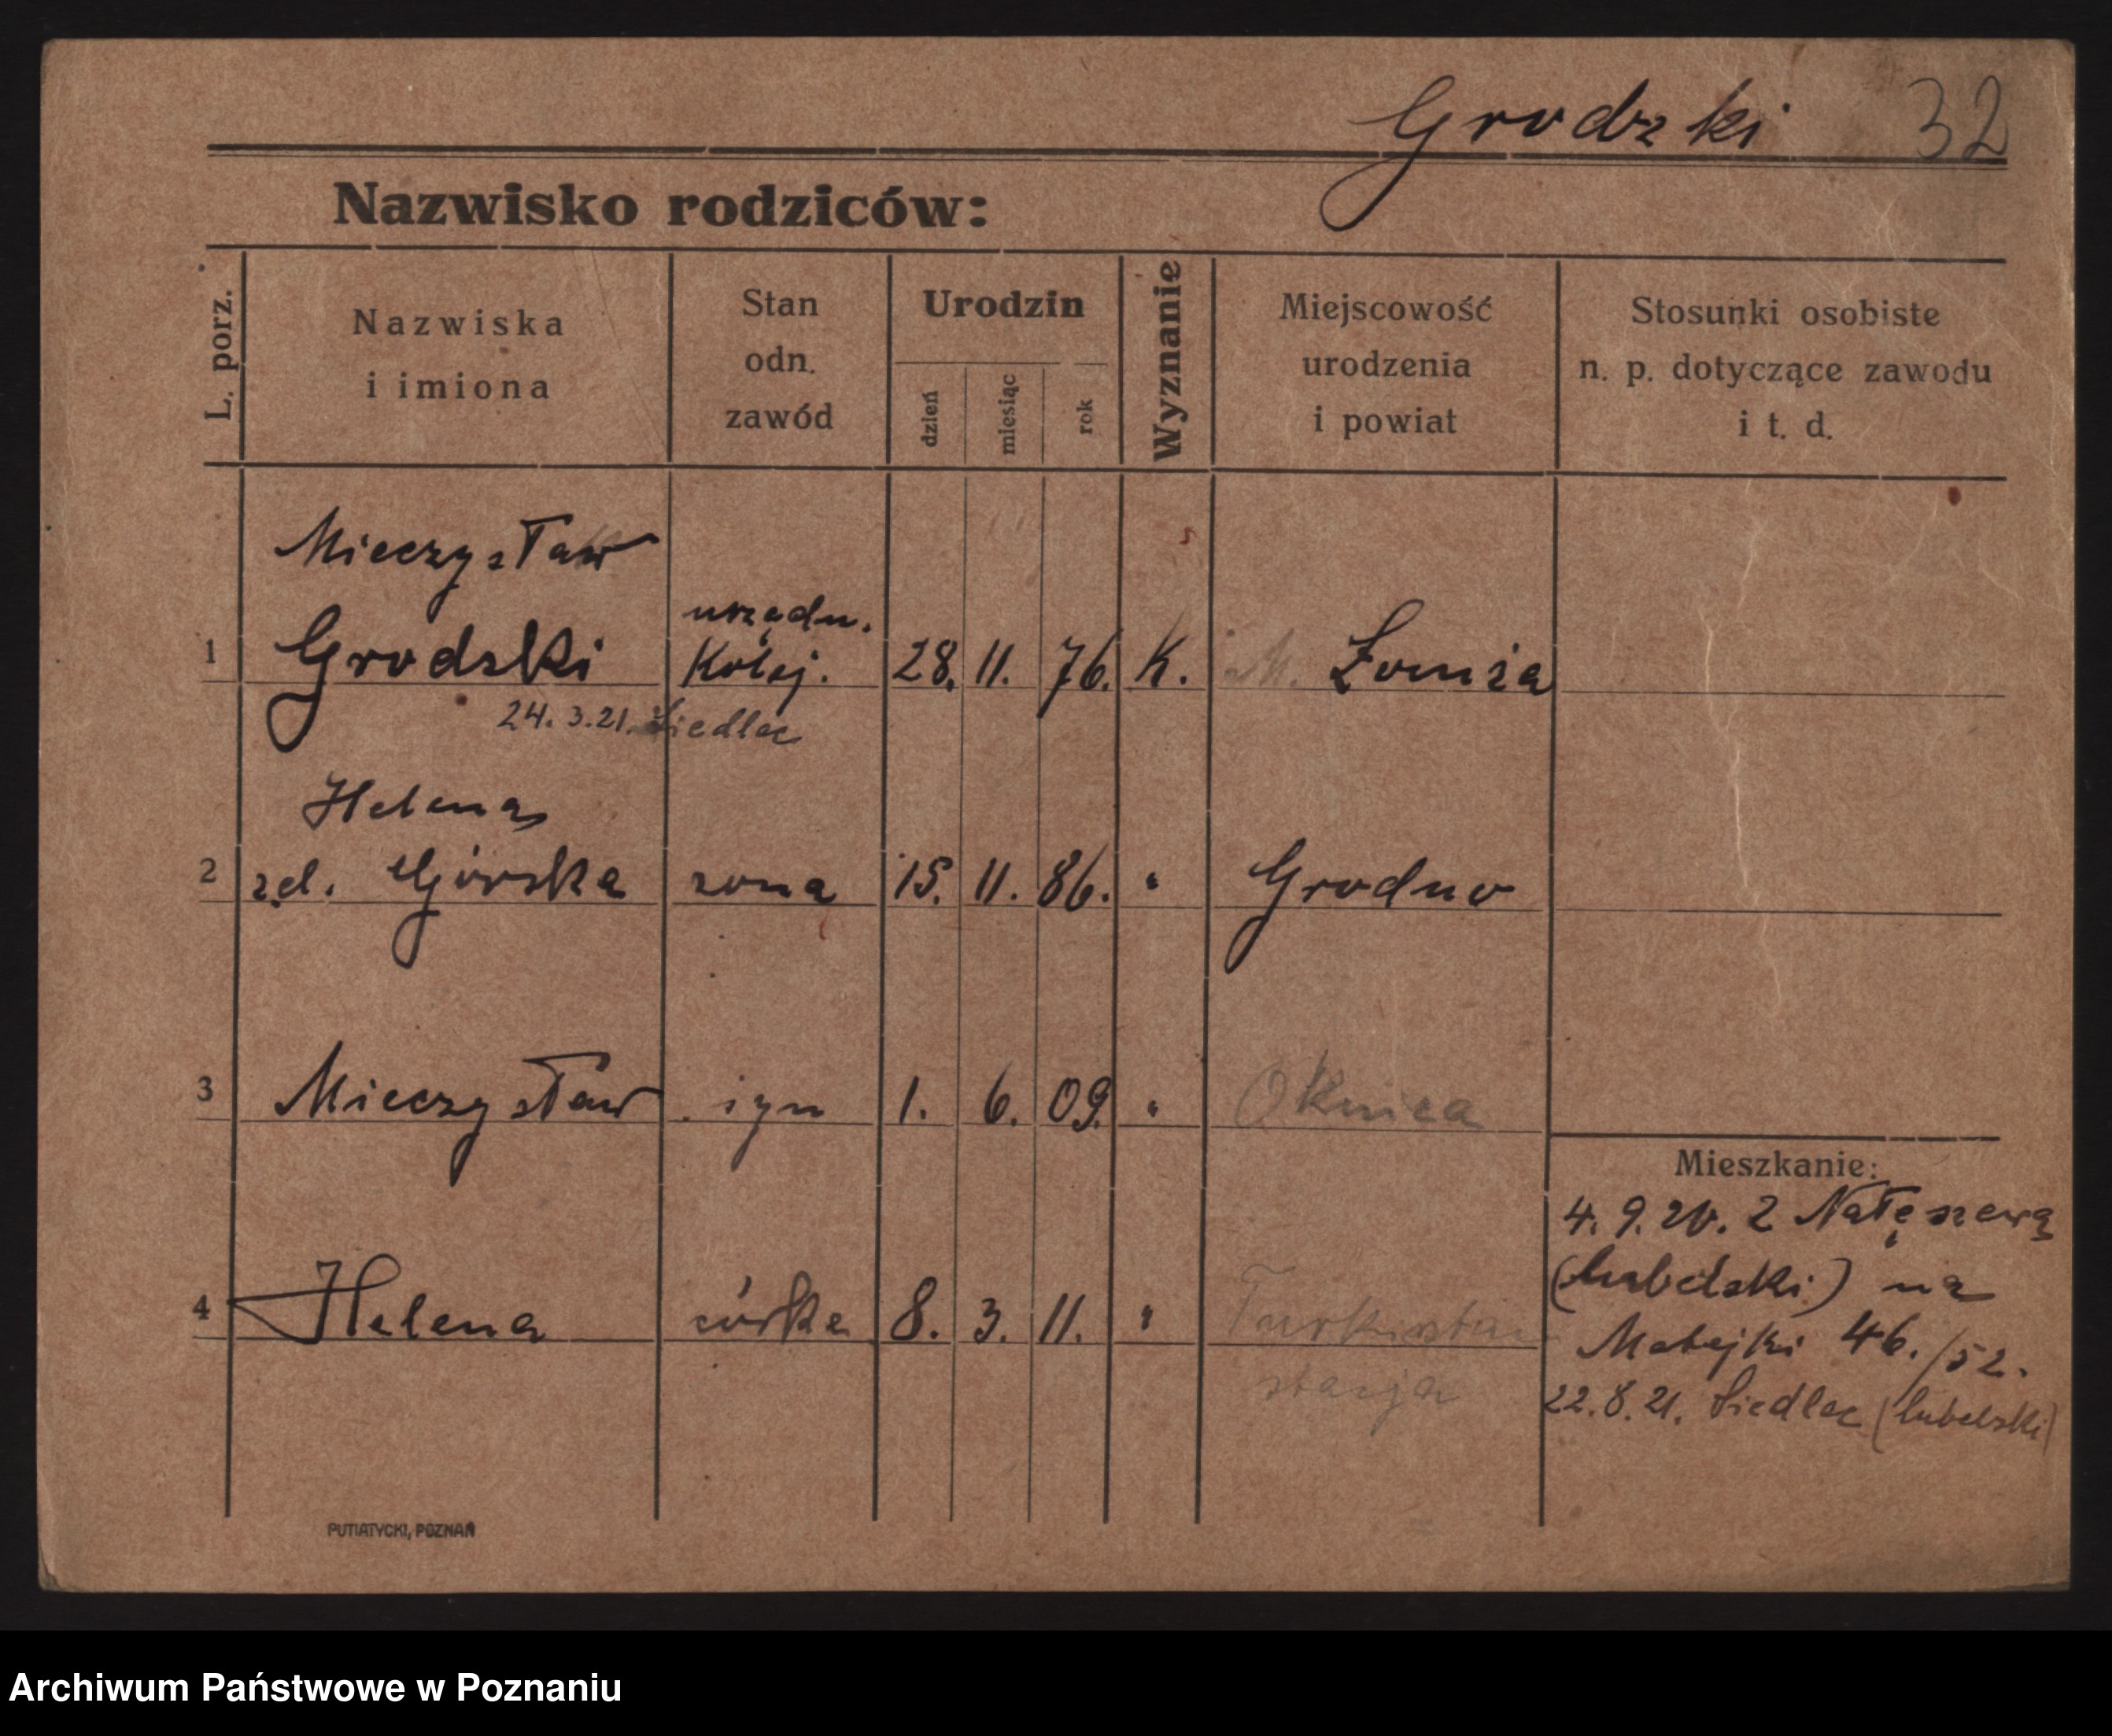 Grodzki 32
Nazwisko rodziców:
L. porz.
Nazwiska
i imiona
Stan
odn.
zawód
Urodzin
dzień
miesiąc
rok
Wyznanie
Miejscowość
urodzenia
i powiat
Stosunki osobiste
n. p. dotyczące zawodu
i t. d.
Mieczysław
urzędn.
1 Grodzki Kolej. 28. 11. 76. K. Łomża
24. 3. 21. Siedlec
Helena
2 zd. Górska żona 15. 11. 86. " Grodno
3 Mieczysław syn 1. 6. 09. " Oknica
Mieszkanie:
4. 9. 20. z
(lubelski) na
4 Helena córka 8. 3. 11. "
Matejki 46./52.
stacja
22. 8. 21. Siedlec (lubelski)
PUTIATYCKI, POZNAŃ
Archiwum Państwowe w Poznaniu